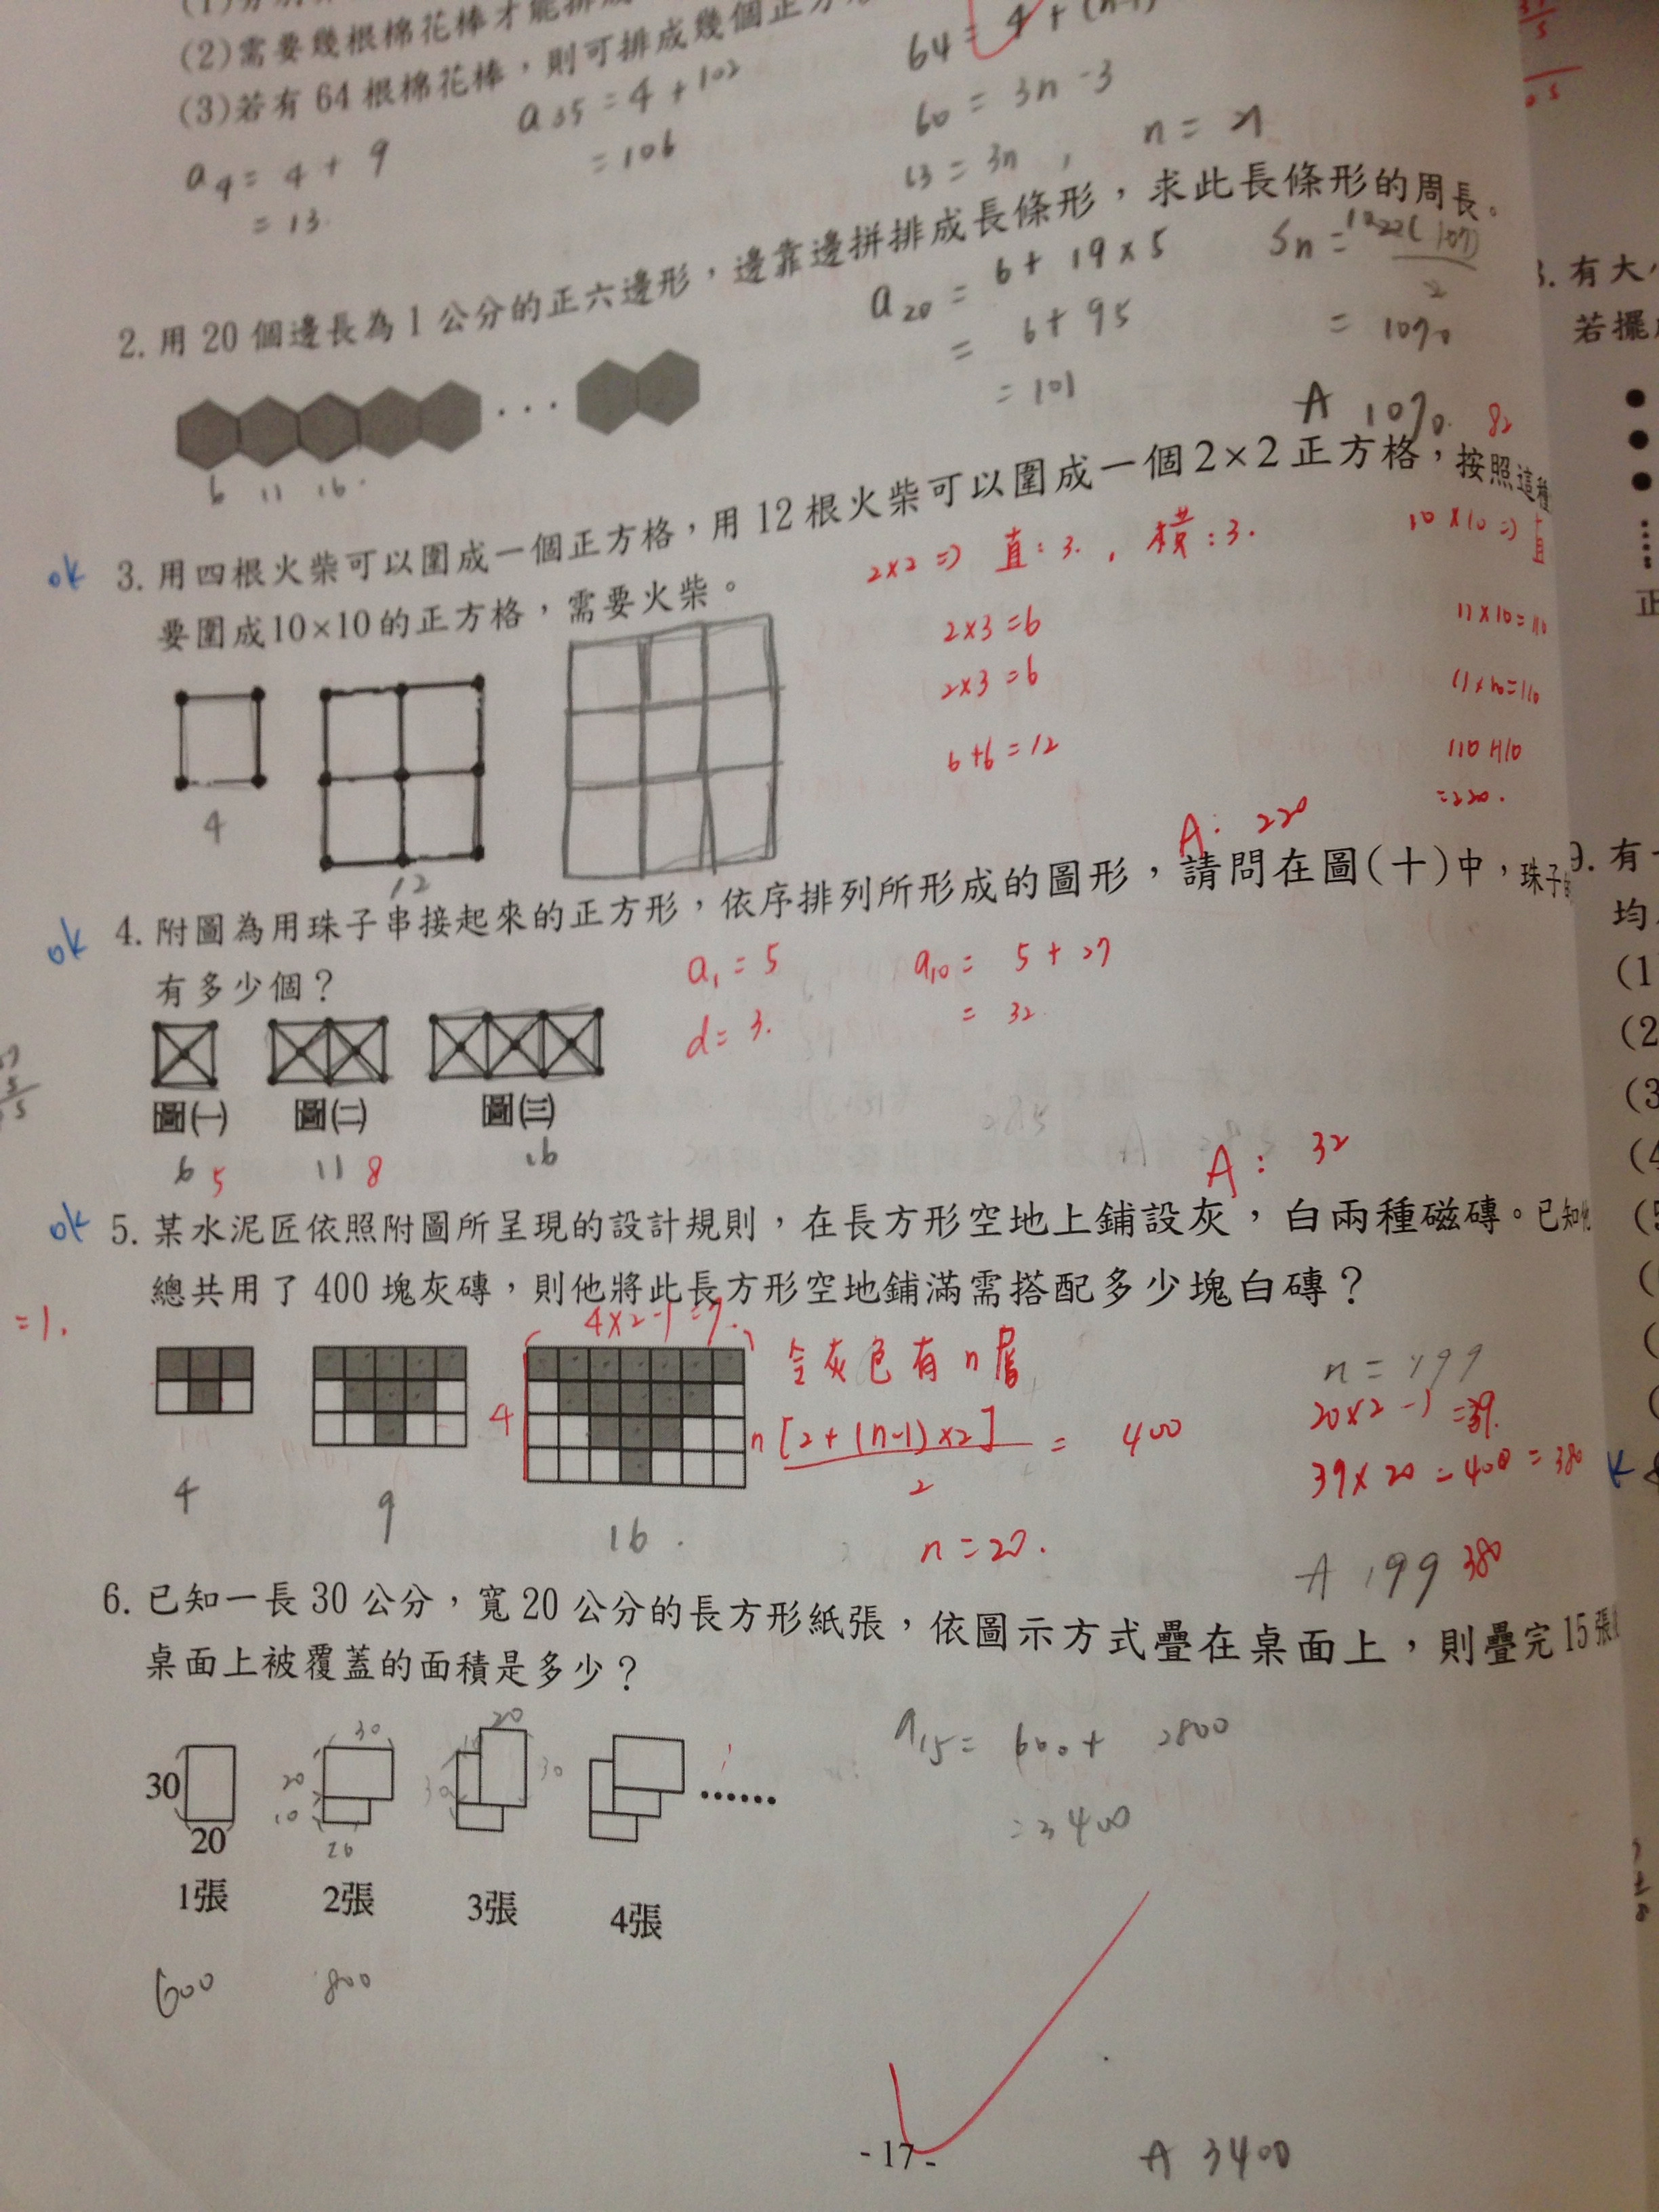 (2)需要幾根棉花棒才能排成
(3)若有 64 根棉花棒，則可排成幾個正方形
64 = 4 + (n-1)
a35 = 4 + 102
60 = 3n - 3
a4 = 4 + 9
= 106
63 = 3n , n = 21
= 13.
2. 用 20 個邊長為 1 公分的正六邊形，邊靠邊拼排成長條形，求此長條形的周長。
a20 = 6 + 19 x 5
= 6 + 95
= 101
Sn =
2
= 1070
A 1070. 82
6 11 16.
3. 有大
若擺
ok 3. 用四根火柴可以圍成一個正方格，用 12 根火柴可以圍成一個 2×2 正方格，按照這種
要圍成10×10的正方格，需要火柴。
2x2 => 直: 3. , 橫: 3.
10 x 10 => 直
2x3 = 6
11 x 10 = 110
2x3 = 6
11 x 10 = 110
6+6 = 12
110+110
=220.
4
12
A: 220
ok 4. 附圖為用珠子串接起來的正方形，依序排列所形成的圖形，請問在圖(十)中，珠子
有多少個？
a1 = 5
a10 = 5 + 27
d = 3.
= 32
圖(一) 圖(二) 圖(三)
6 5 11 8 16
A: 32
ok 5. 某水泥匠依照附圖所呈現的設計規則，在長方形空地上鋪設灰，白兩種磁磚。已知他
總共用了 400 塊灰磚，則他將此長方形空地鋪滿需搭配多少塊白磚？
=1.
4x2-1=7.
4
令灰色有n層
n[2+(n-1)x2] = 400
2
n=20.
n = 199
20x2-1 =39.
39x20-400 = 380
4 9 16.
A 199 380
6. 已知一長 30 公分，寬 20 公分的長方形紙張，依圖示方式疊在桌面上，則疊完 15 張
桌面上被覆蓋的面積是多少？
30
20
30
20
10
20
20
10
30
30
a15 = 600 + 2800
= 3400
1張 2張 3張 4張
600 800
- 17 -
A 3400
9. 有
均
(1
(2
(3
(4
(5